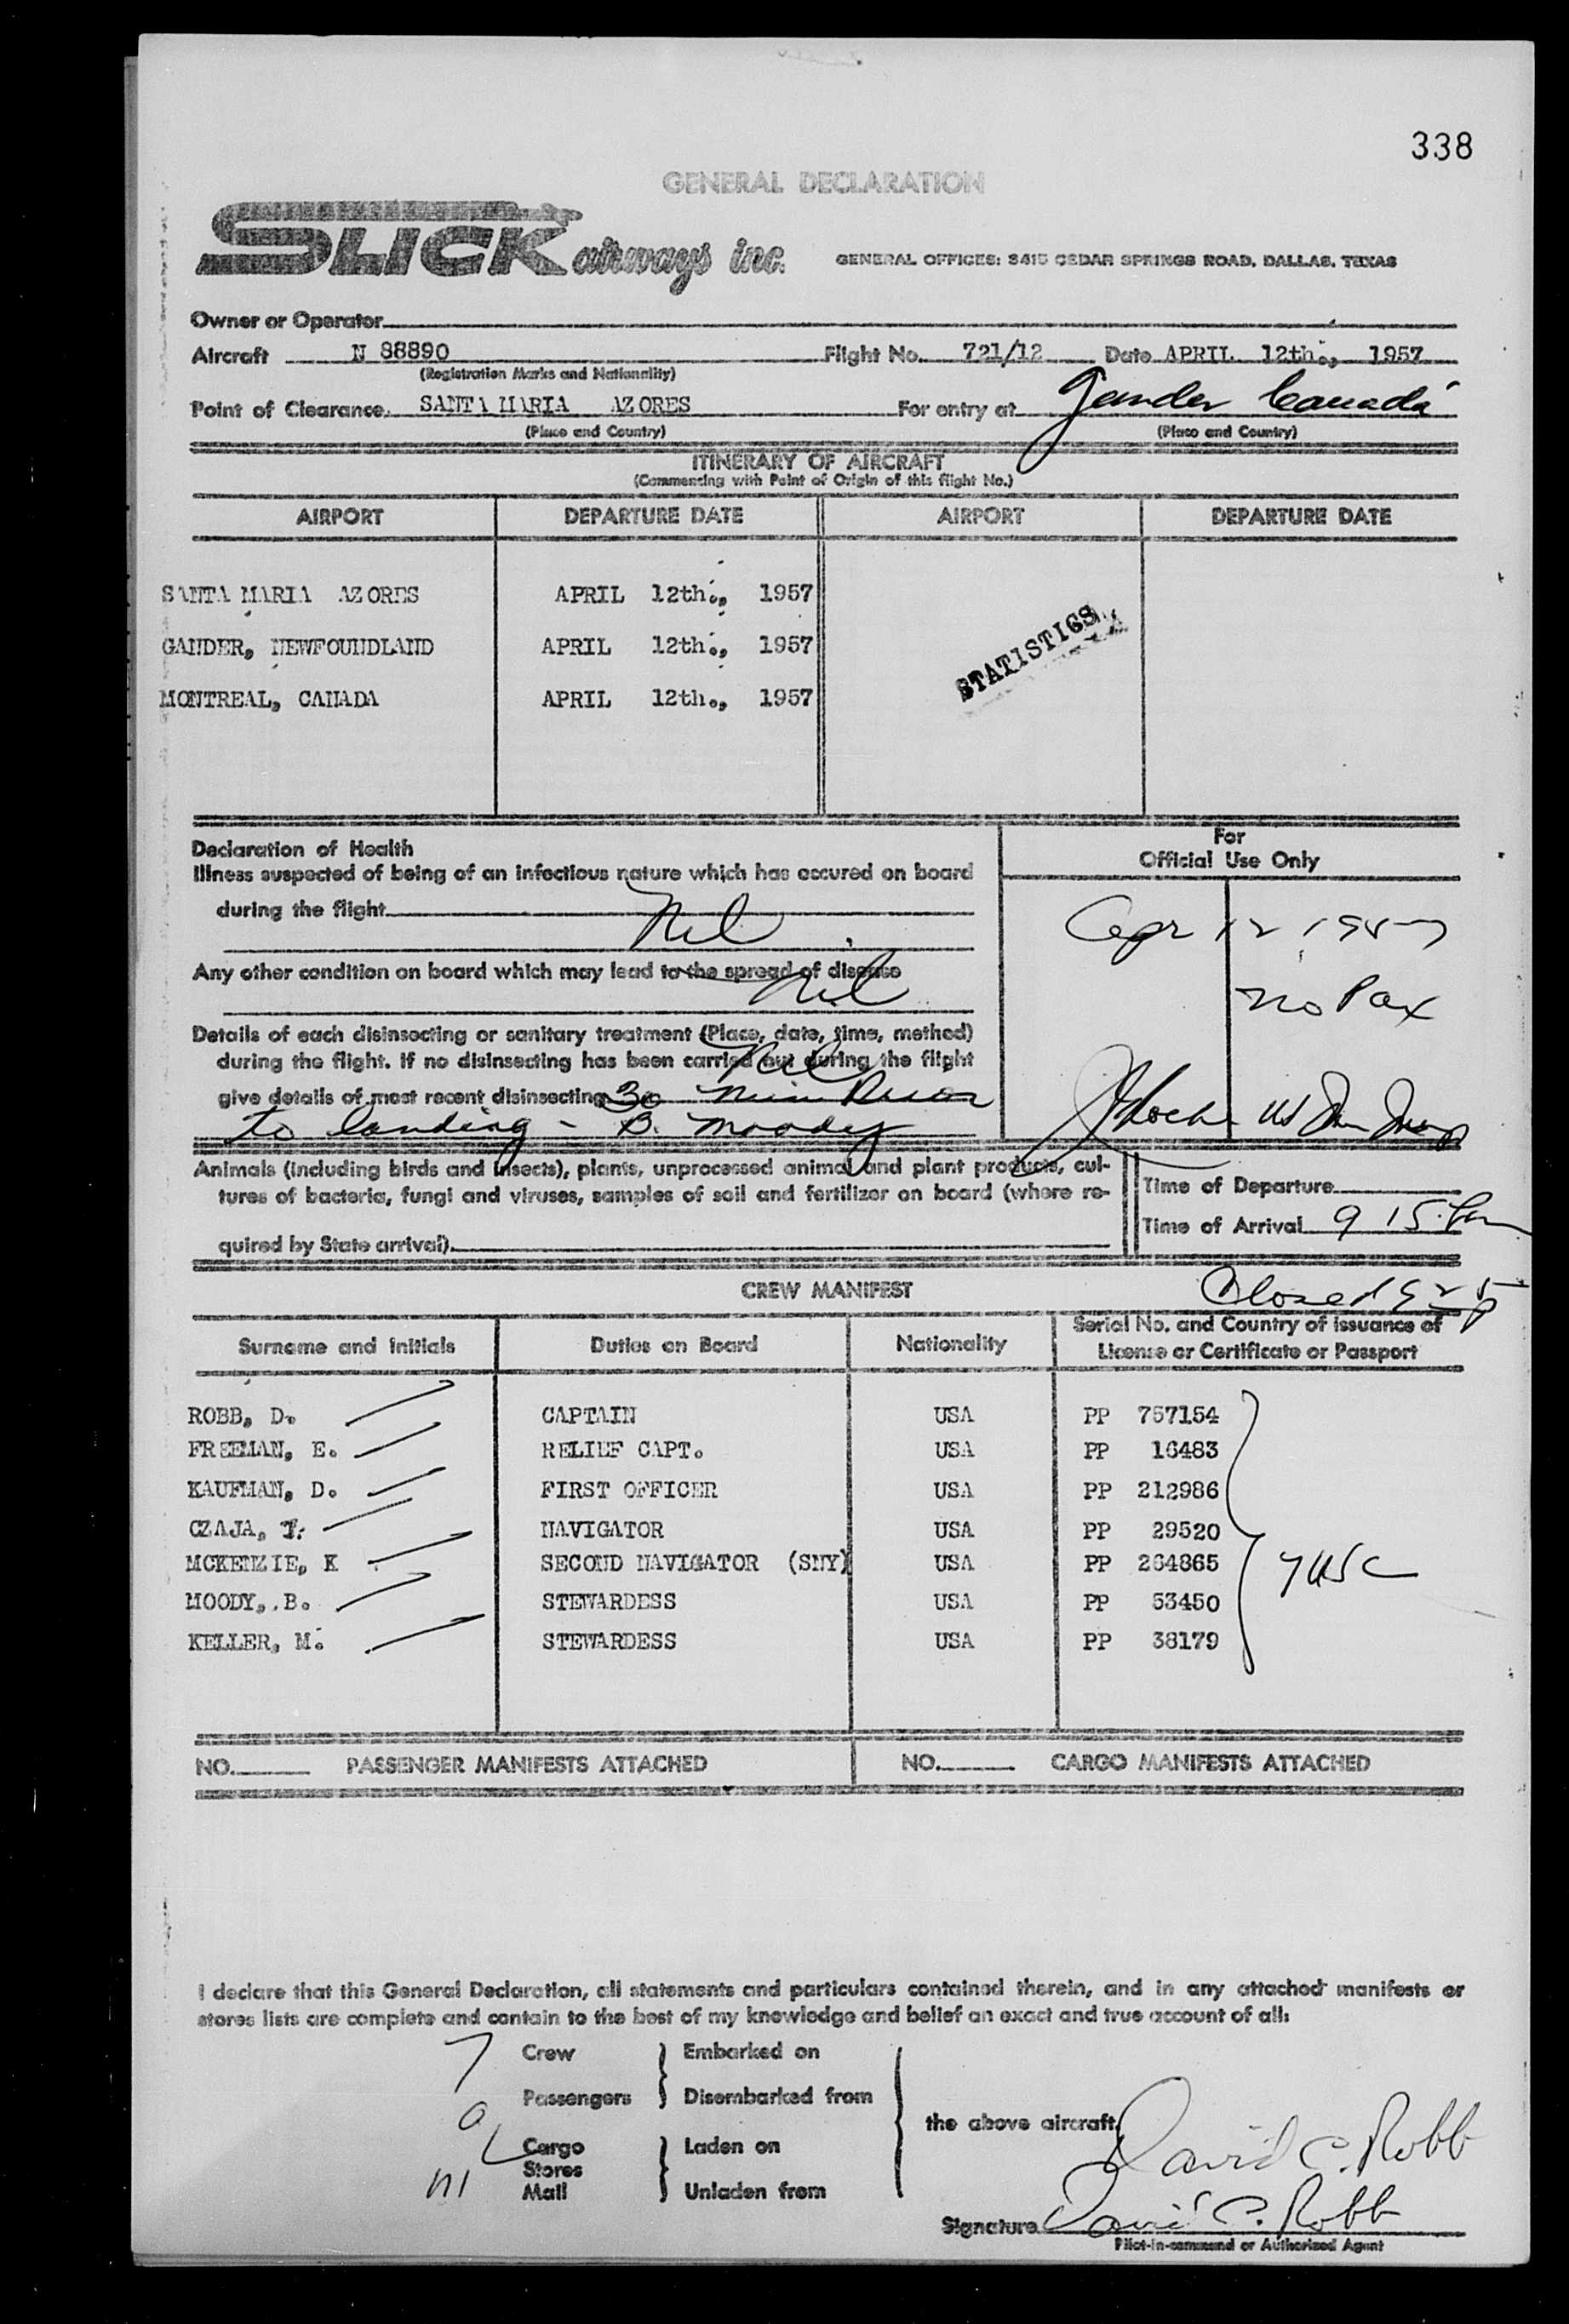 338
GENERAL DECLARATION
SLICK airways inc. GENERAL OFFICES: 3415 CEDAR SPRINGS ROAD, DALLAS, TEXAS
Owner or Operator
Aircraft N 88890 Flight No. 721/12 Date APRIL 12th., 1957
(Registration Marks and Nationality)
Point of Clearance SANTA MARIA AZORES For entry at Gander Canada
(Place and Country) (Place and Country)
ITINERARY OF AIRCRAFT
(Commencing with Point of Origin of this flight No.)
AIRPORT DEPARTURE DATE AIRPORT DEPARTURE DATE
SANTA MARIA AZORES APRIL 12th., 1957
GANDER, NEWFOUNDLAND APRIL 12th., 1957
STATISTICS
MONTREAL, CANADA APRIL 12th., 1957
Declaration of Health
For
Official Use Only
Illness suspected of being of an infectious nature which has occured on board
during the flight Nil
Apr 12 1957
Any other condition on board which may lead to the spread of disease
Nil
no Pax
Details of each disinsecting or sanitary treatment (Place, date, time, method)
during the flight. If no disinsecting has been carried out during the flight
Nil
give details of most recent disinsecting 30 min Prior
to landing - B. Moody
Animals (including birds and insects), plants, unprocessed animal and plant products, cul-
tures of bacteria, fungi and viruses, samples of soil and fertilizer on board (where re-
quired by State arrival).
Time of Departure
Time of Arrival 9 15 Pm
CREW MANIFEST
Closed 925 P
Surname and Initials Duties on Board Nationality Serial No. and Country of issuance of
License or Certificate or Passport
ROBB, D. CAPTAIN USA PP 757154
FREEMAN, E. RELIEF CAPT. USA PP 16483
KAUFMAN, D. FIRST OFFICER USA PP 212986
CZAJA, T. NAVIGATOR USA PP 29520
MCKENZIE, K SECOND NAVIGATOR (SNY) USA PP 264865 7 USC
MOODY, B. STEWARDESS USA PP 53450
KELLER, M. STEWARDESS USA PP 38179
NO. PASSENGER MANIFESTS ATTACHED NO. CARGO MANIFESTS ATTACHED
I declare that this General Declaration, all statements and particulars contained therein, and in any attached manifests or
stores lists are complete and contain to the best of my knowledge and belief an exact and true account of all:
7 Crew Embarked on
0 Passengers Disembarked from
the above aircraft.
Cargo Laden on
Stores
Mail Unladen from
David C. Robb
Signature David C. Robb
Pilot-in-command or Authorized Agent